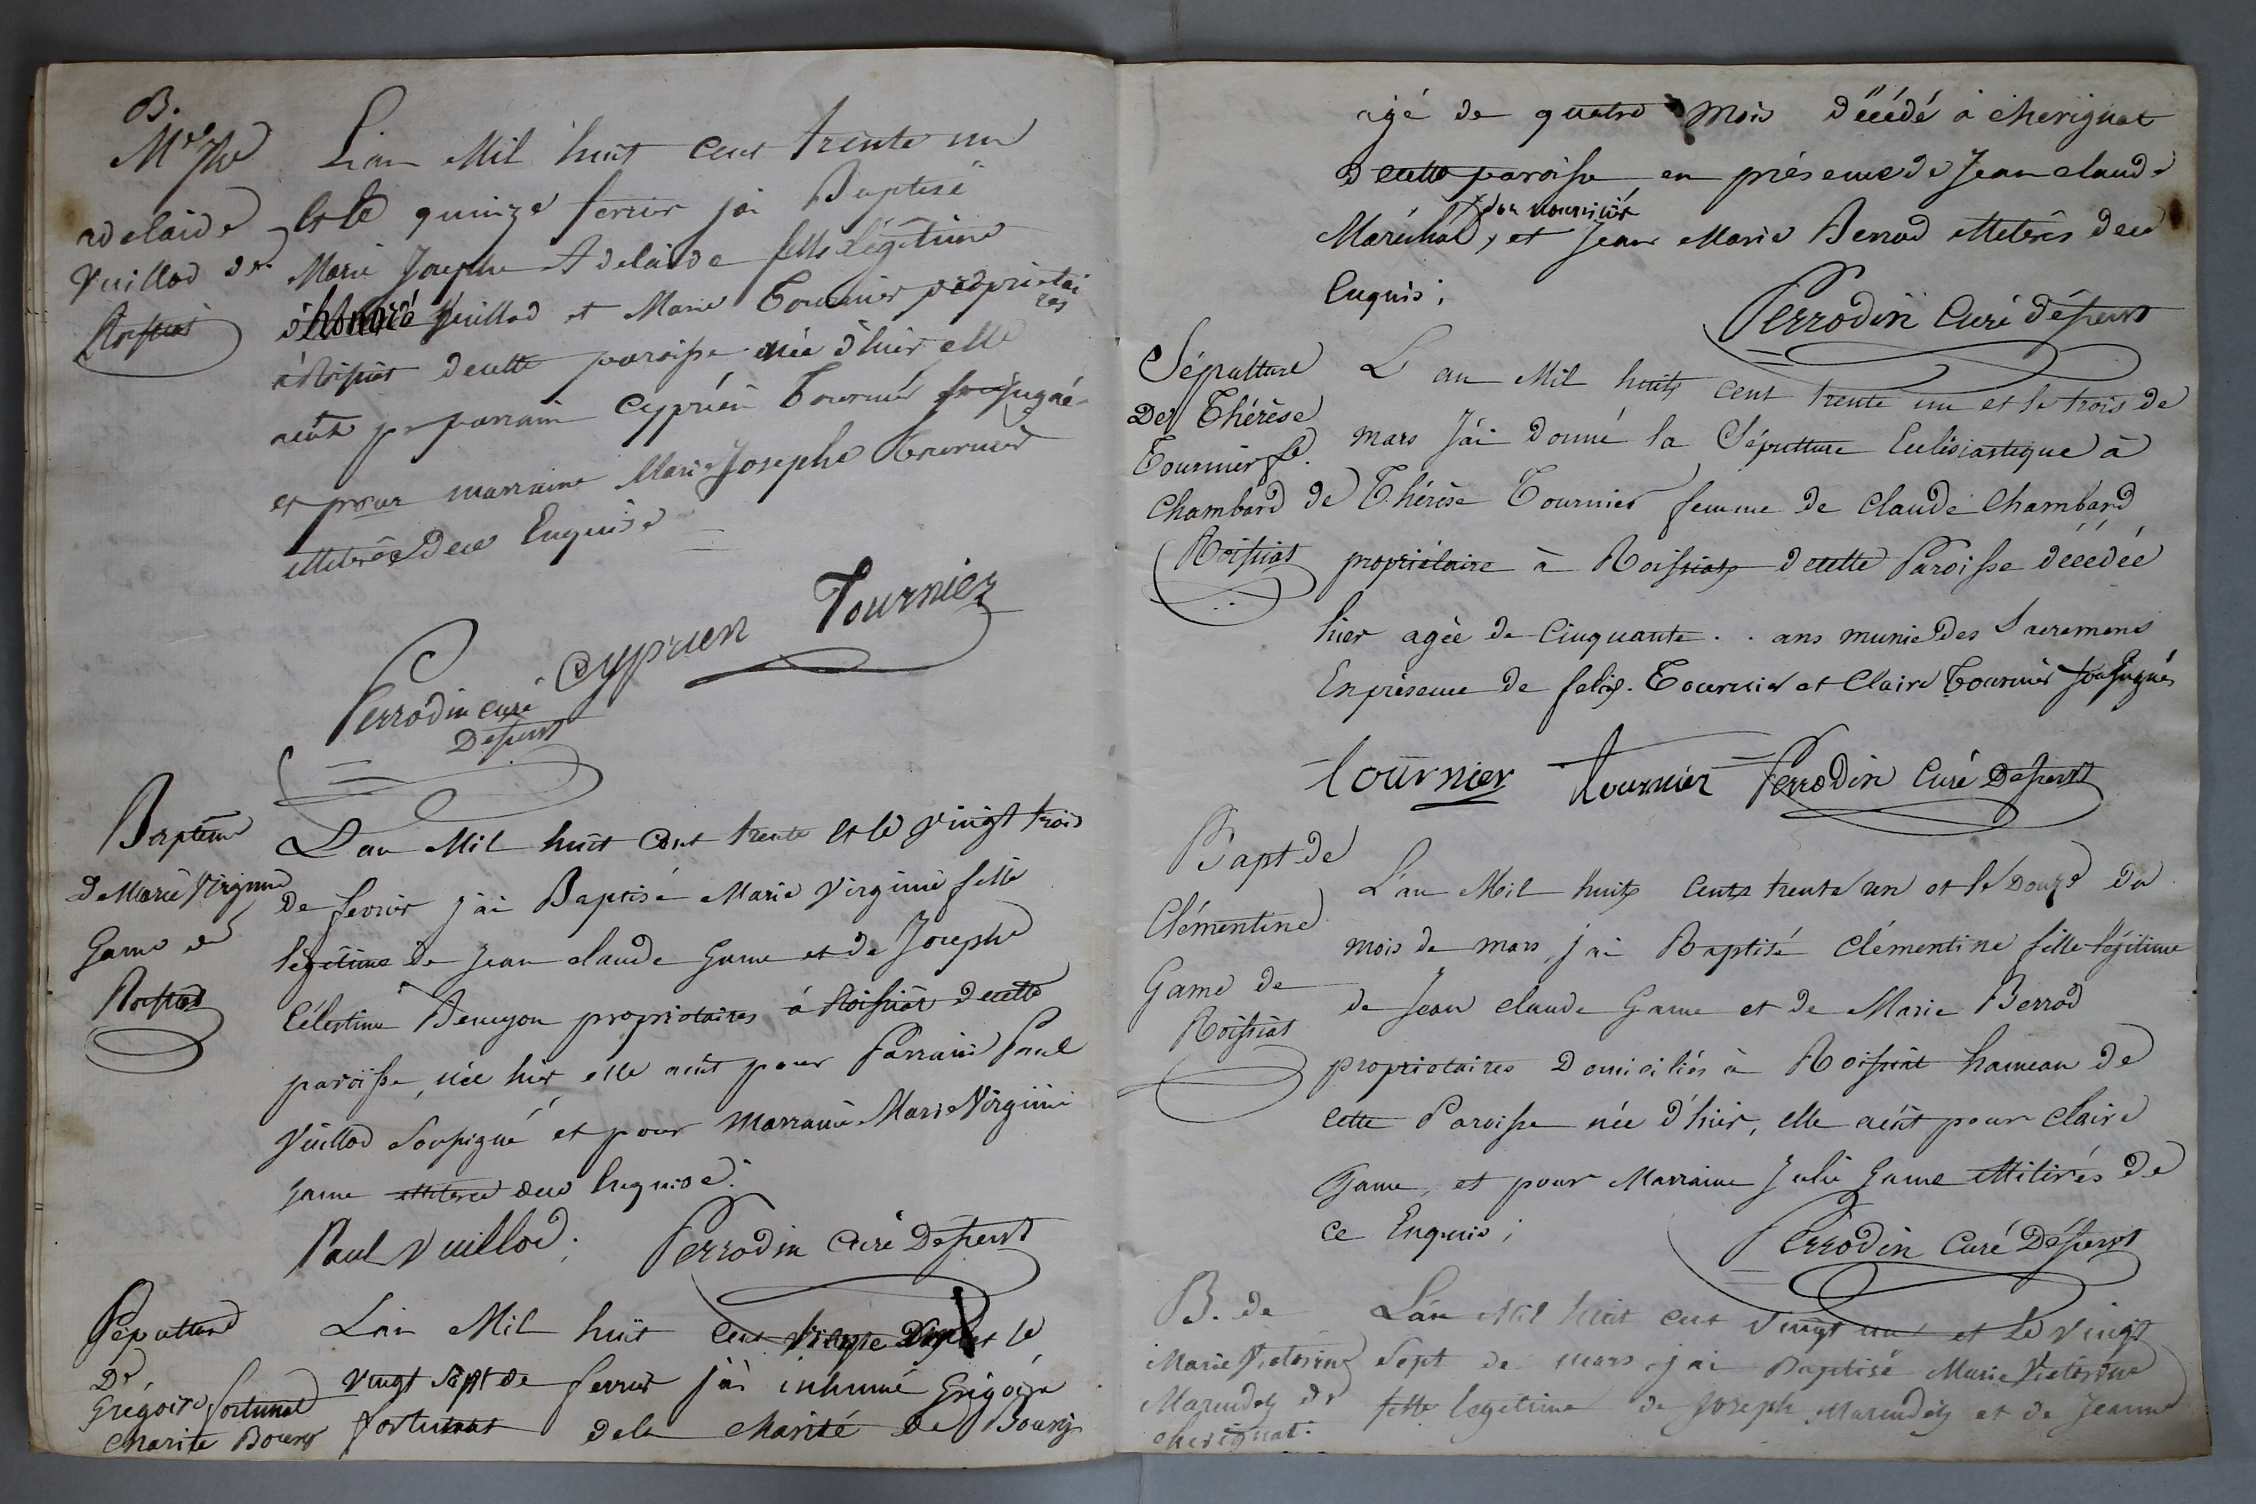 B.
Me Jhe
adelaide
Vuillod de
Roissiat
L'an Mil huit cent trente un
et le quinze fevrier jai Baptisé
Marie Josephe Adelaide fille légitime
d'honoré Vuillod et Marie Tournier propriétai
res
à Roissiat decette paroisse née d'hier elle
aeut pr parrain Cyprien Tournier soussigné
et pour marraine Marie Josephe Tournier
illetrée dece Enquise
Cyprien Tournier
Perrodin curé
Dépervt
Baptême
de Marie Virginie
Game de
Roissiat
L'an Mil huit Cent trente et le vingt trois
de fevrier j'ai Baptisé Marie Virginie fille
légitime de Jean claude Game et de Josephe
Célestine Bennyon propriotaires à Roissiat decette
paroisse, née hier, elle aeut pour Parrain Paul
Vuillod Soussigné et pour Marraine Marie Virginie
game illitérée dece Enquise.
Paul Vuillod. Perrodin Curé Dépervt
Sépulture
De
Grégoire fortunat
charité Bourg
L'an Mil huit Cent et le
vingt sept de fevrier j'ai inhumé Grégoire
fortunat dela charité de Bourg
agé de quatre Mois décédé à cherignat
decette paroisse en présence de Jean claude
son nourricier
Maréchal, et Jean Marie Berrod illetérés dece
Enquis;
Perrodin Curé Dépervt
Sépulture
De Thérèse
Tournier fe.
Chambard de
Roissiat
L'an Mil huit cent trente un et le trois de
mars J'ai donné la Sépulture Eclésiastique à
Thérèse Tournier femme de Claude Chambard
propriétaire à Roissiat decette Paroisse décédée
hier agée de Cinquante . . ans munie des Sacremens
En présence de felix. Tournier et Claire Tournier soussignés
tournier tournier Perrodin Curé Dépervt
Bapt de
Clémentine
Game de
Roissiat
L'an Mil huit Cent trente un et le douze du
mois de mars, j'ai Baptisé Clémentine fille légitime
de Jean claude Game et de Marie Berrod
propriotaires Domiciliés à Roissiat hameau de
cette Paroisse née d'hier, elle aeut pour Claire
Game, et pour Marraine Julie Game illitérés de
ce Enquis;
Perrodin Curé Dépervt
B. de
Marie Victorine
Marendet de
cherignat.
L'an Mil huit cent vingt un et le vingt
Sept de mars, j'ai Baptisé Marie Victorine
fille legitime de Joseph Marendet et de Jeanne